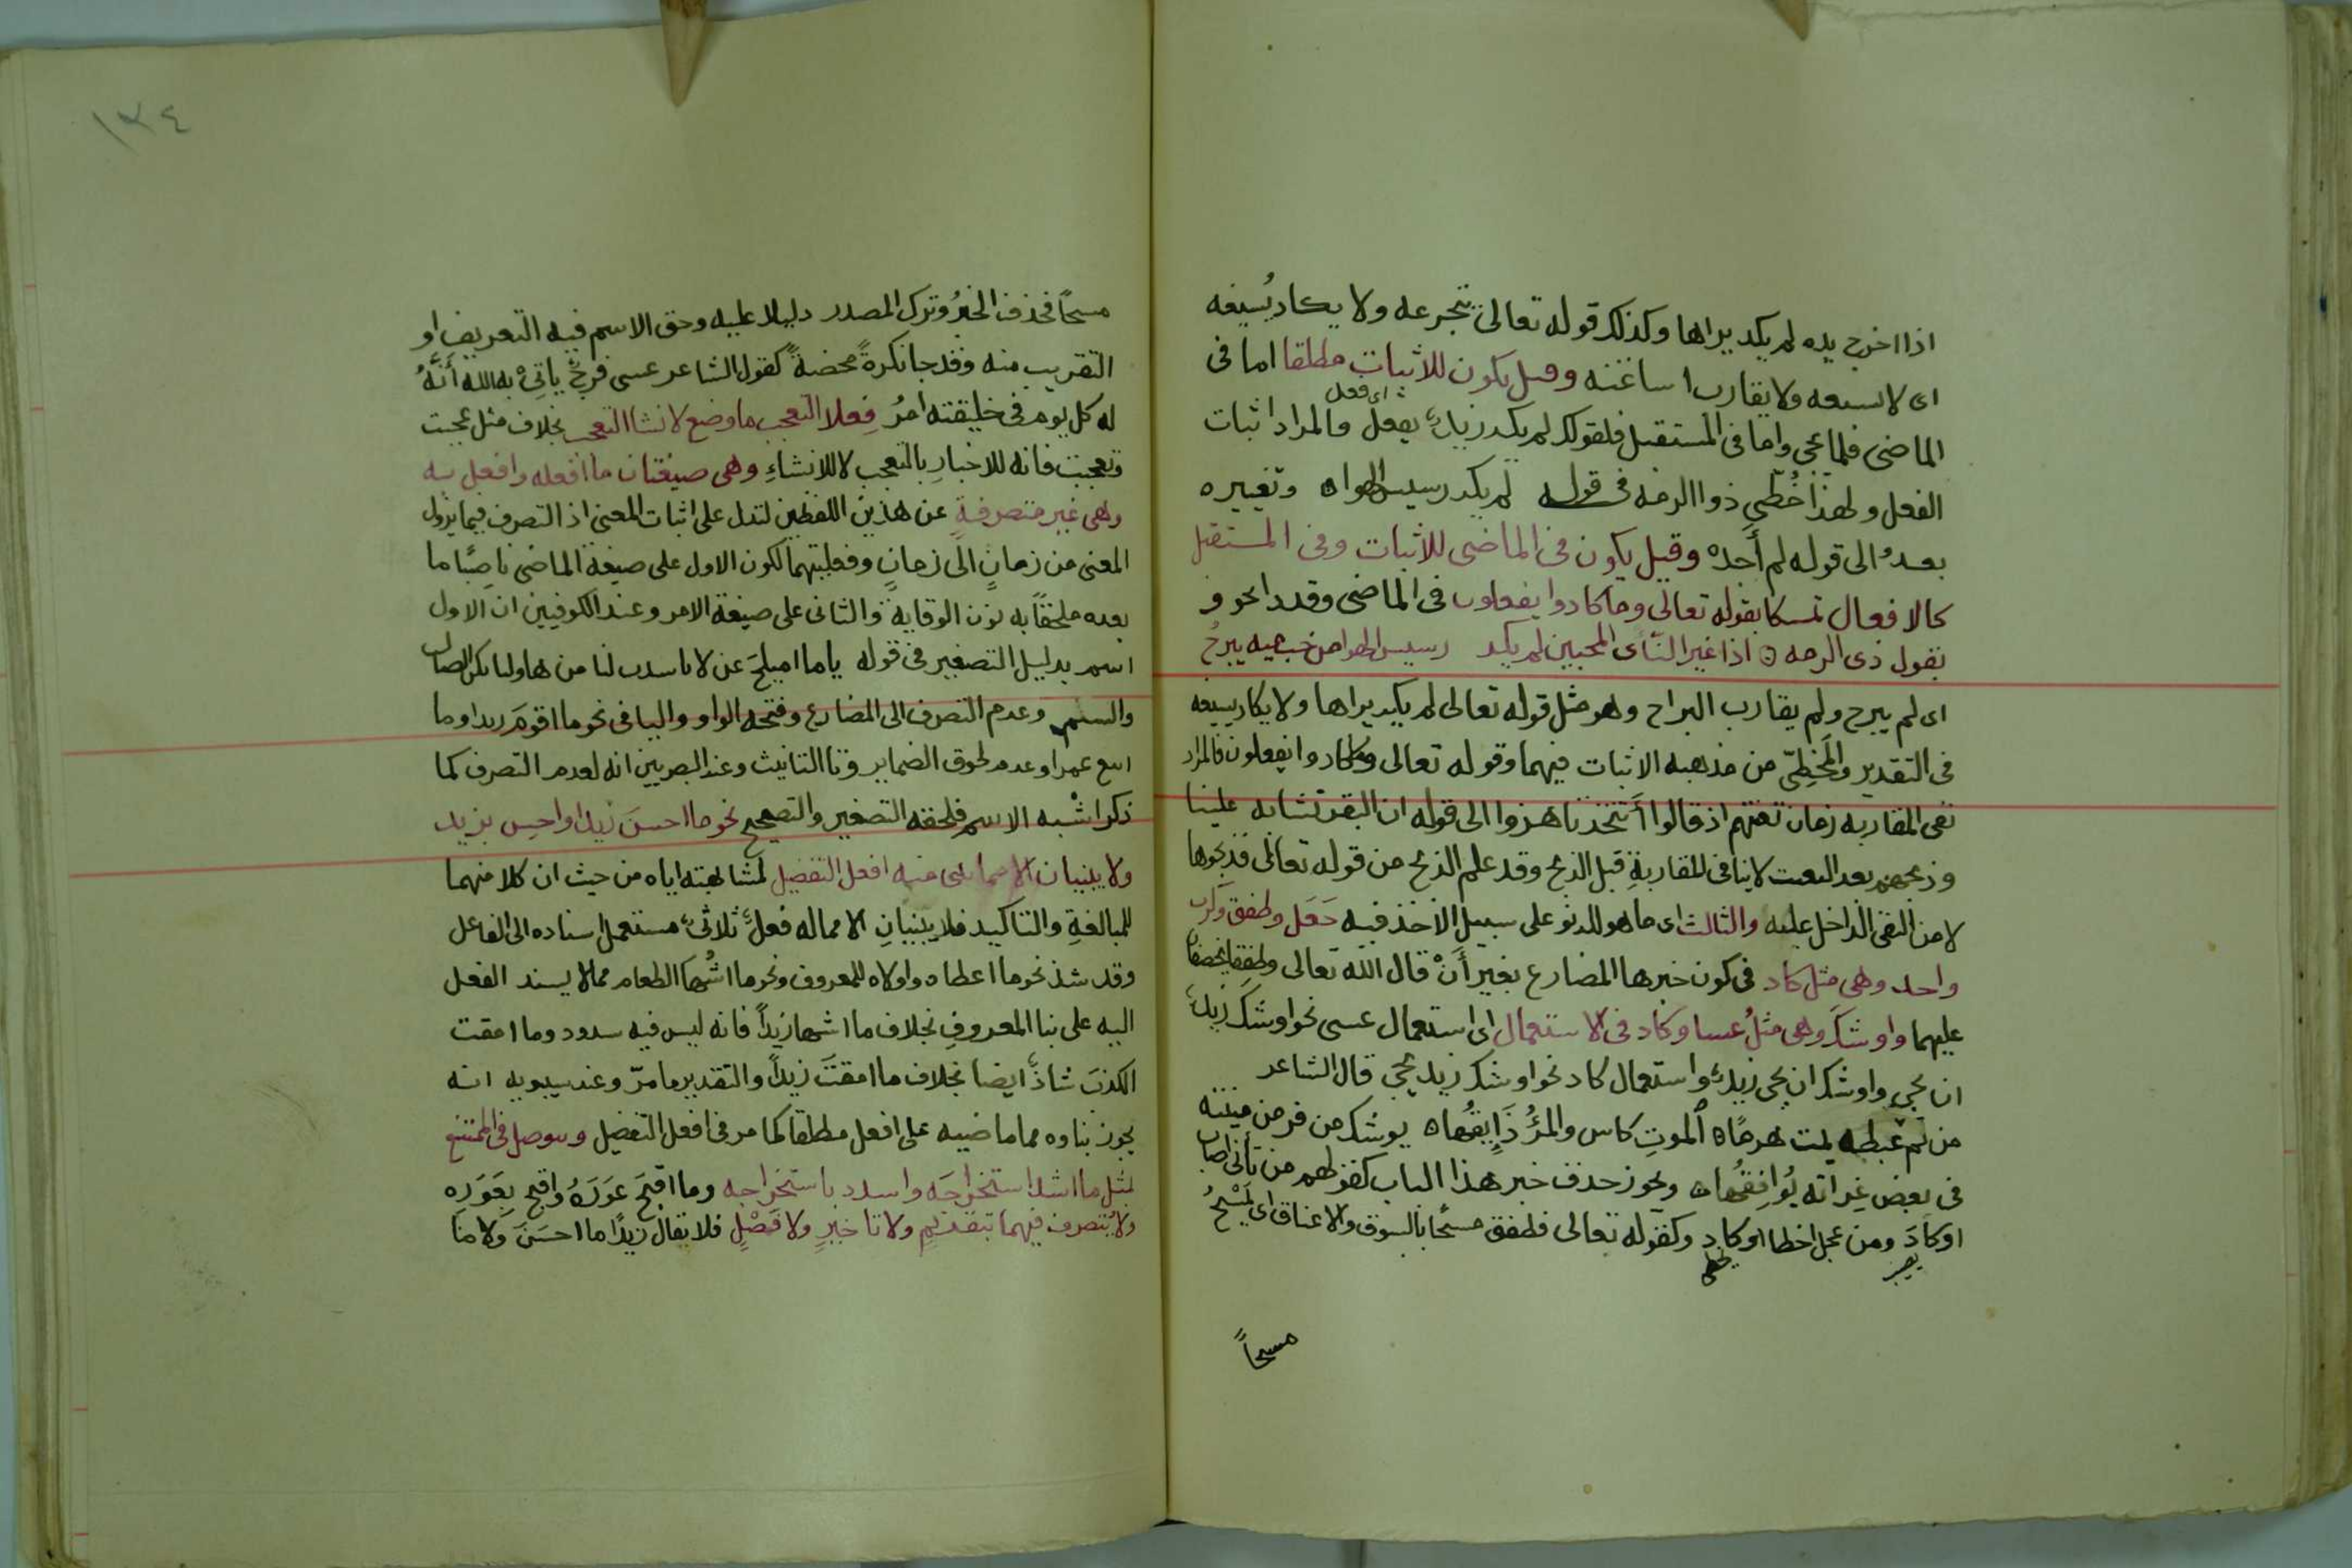 اذا اخرج يده لم يكد يراها وكذلك قوله تعالى يتجرعه ولا يكاد يُسيغه
اى لا يسيعه ولا يقارب اساغته وقيل يكون للاثبات مطلقا اما فى
اى فعل
الماضى فلما يجى واما فى المستقبل فلقولك لم يكد زيدٌ يفعل والمراد اثبات
الفعل ولهذا خُطّى ذوا الرمه فى قوله لم يكد رسيس الهواه وتغييره
بعدُ الى قوله لم أجده وقيل يكون فى الماضى للاثبات وفى المستقبل
كالافعال تمسكا بقوله تعالى وما كادوا يفعلون فى الماضى وقد
بقول ذى الرمه ه اذا غير النأى المحبين لم يكد رسيس الهوا من حب ميه يبرحُ
اى لم يبرح ولم يقارب البراح وهو مثل قوله تعالى لم يكد يراها ولا يكاد يسيعه
فى التقدير والمخطِّى من مذهبه الاثبات فيهما وقوله تعالى وما كادوا يفعلون فالمراد
نفى المقاربه زمان تعنتهم اذ قالوا أتتخذنا هزوا الى قوله ان البقر تشابه علينا
وذبحهم بعد التعنت لا ينافى المقاربةِ قبل الذبح وقد علم الذبح من قوله تعالى فذبحوها
لا من النفى الداخل عليه والثالث اى ما هو للدنو على سبيل الاخذ فيه جَعَل وطفق وكرب
واحد وهى مثل كاد فى كون خبرها المضارع بغير أَنْ قال الله تعالى وطفقا يخصفان
عليهما واوشكَ وهى مثلُ عسا وكاد فى الاستعمال اى استعمال عسى نحو اوشك زيدٌ
ان يجى واوشك ان يجى زيدٌ واستعمال كاد نحو اوشك زيد يجى قال الشاعر
من لم عبطه يمت هرمًا ه الموتِ كاس والمرُؤ ذَايقُها ه يوشك من فر من ميتته
فى بعض غِراته يُوافِقُها ه ويجوز حذف خبر هذا الباب كقولهم من تأنى اصاب
اوكادَ ومن عجل اخطا اوكاد وكقوله تعالى فطفق مسحًا بالسوق والاعناق اى يَمْسَحُ
مسحاً
مسحاً فحذف الخبرُ وترك المصدر دليلا عليه وحق الاسم فيه التعريف او
التقريب منه وقد جا نكرةً محضةً كقول الشاعر عسى فرجٌ ياتِى به الله أَنَّهُ
له كل يوم فى خليقته امرُ فِعلا التعجب ما وضع لانشا التعجب بخلاف مثل عجبت
وتعجبت فانه للاخبارِ بالتعجب لا للانشاءِ وهى صيغتان ما افعله وافعل به
وهى غير متصرفةٍ عن هذين اللفظين لتدل على اثبات المعنى اذ التصرف فيما يزول
المعنى من زمانٍ الى زمانٍ وفعليتهما لكون الاول على صيغة الماضى ناصِبًا ما
بعده ملحقاً به نون الوقاية والثانى على صيغة الامر وعند الكوفيين ان الاول
اسم بدليل التصغير فى قوله ياما اميلحَ لنا من هاوليا بكن الضال
والسلم وعدم التصرف الى المضارع وفتحه الواو واليا فى نحو ما اقومَ زيدا وما
ابيع عمرا وعدم لحوق الضماير وتا التانيث وعند البصريين انه لعدم التصرف كما
ذكر اشْبه الاسم فلحقه التصغير والتصحيح نحو ما احسنَ زيدا واحسِن بزيد
ولا يبنيان الا مما بنى منه افعل التفضيل لمشابهته اياه من حيث ان كلا منهما
للمبالغةِ والتاكيد فلا يبنيانِ الا مما له فعلٌ ثلاثىٌ مستعمل اسناده الى الفاعل
وقد شذ نحو ما اعطاه واولاه للمعروف ونحو ما اشهها الطعام مما لا يسند الفعل
اليه على بنا المعروفِ بخلاف ما اشها زيداً فانه ليس فيه سدود وما امقت
الكذبَ شاذٌ ايضا بخلاف ما امقتَ زيداً والتقدير ما مرّ وعند سيبويه انه
يجوز بناوه مما ماضيه على افعل مطلقا كما مر فى افعل التفضيل وسوصل فى الممتنع
بمثل ما اشد استخراجَه واسدد باستخراجه وما اقبحَ عَوَرَهُ واقبح بِعَوَرِه
ولا يُتصرف فيهما بتقديمٍ ولا تاخيرٍ ولا فَصْلٍ فلا يقال زيدًا ما احسَنَ ولا ما
١٣٤